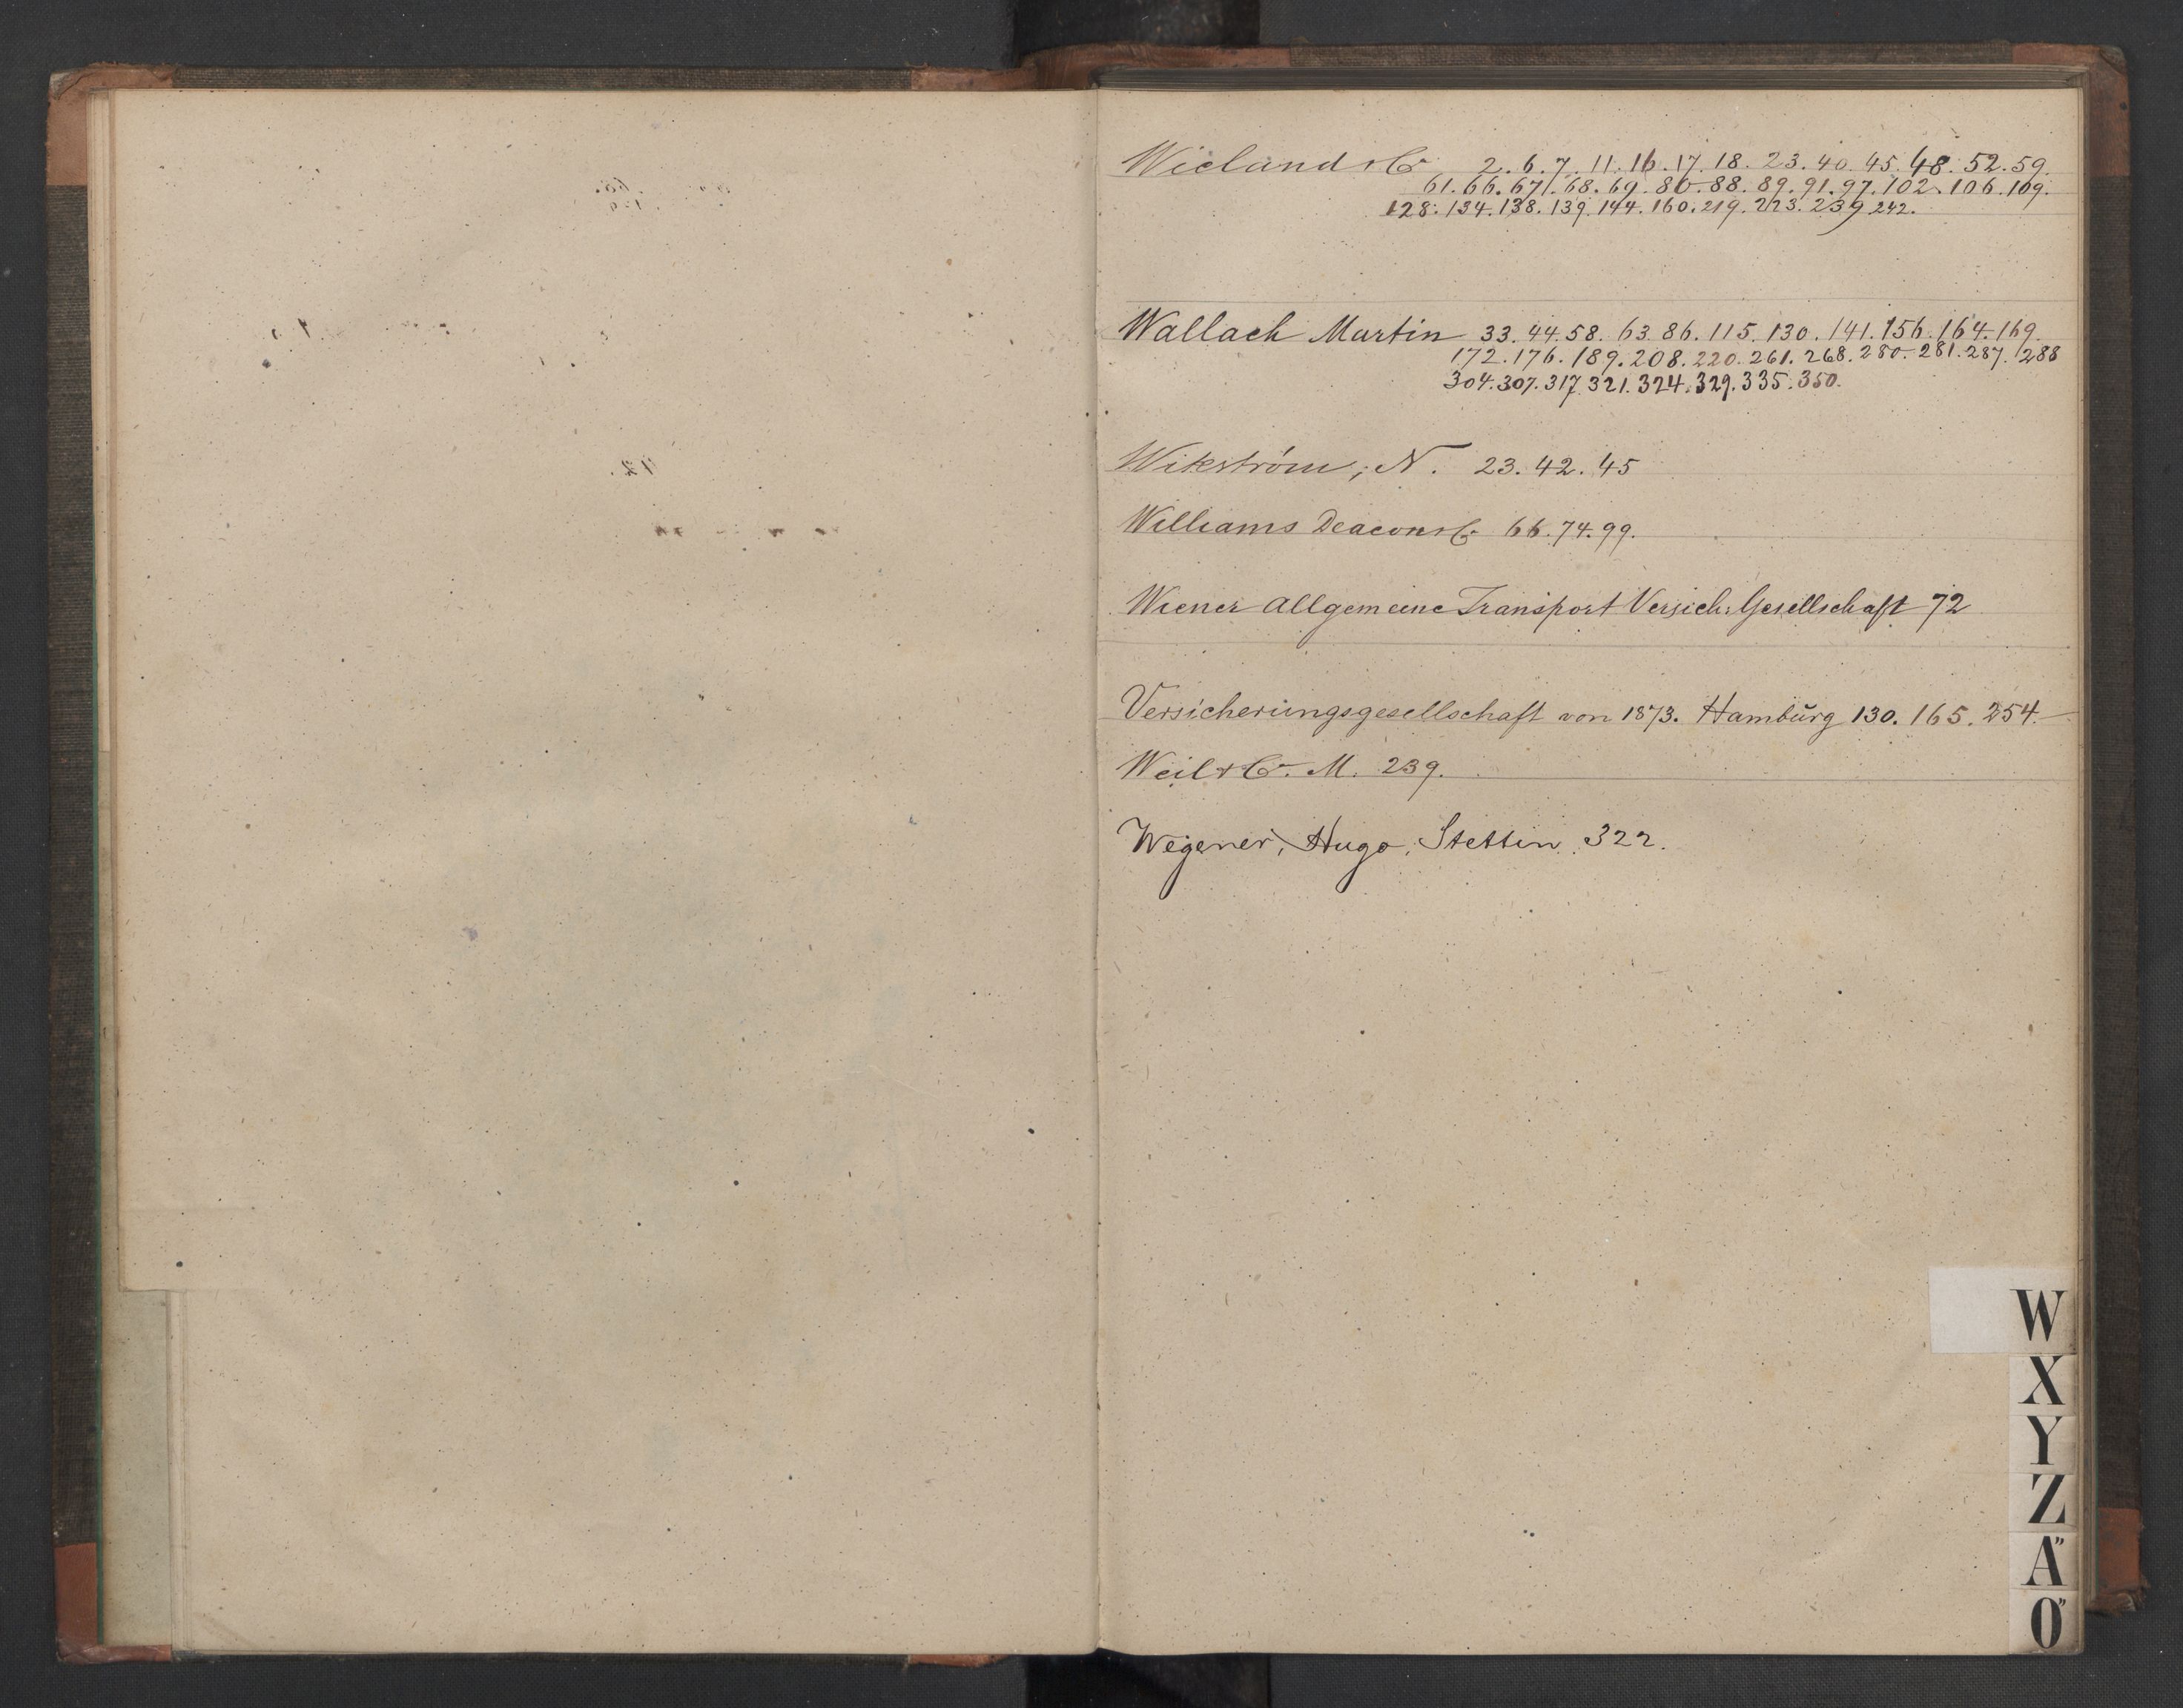 Wieland & Co 2. 6. 7. 11. 16. 17. 18. 23. 40. 45. 48. 52. 59.
61. 66. 67. 68. 69. 80. 88. 89. 91. 97. 102. 106. 109.
128. 134. 138. 139. 144. 160. 219. 223. 239 242.
Wallach Martin 33. 44. 58. 63. 86. 115. 130. 141. 156. 164. 169.
172. 176. 189. 208. 220. 261. 268. 280. 281. 287. 288
304. 307. 317 321. 324. 329. 335. 350.
Wikström, N. 23. 42. 45
Williams Deacon & Co 66. 74. 99.
Wiener Allgemeine Transport Versich: Gesellschaft 72
Versicherungsgesellschaft von 1873. Hamburg 130. 165. 254.
Weil & Co. M. 239.
Wegener, Hugo, Stettin 322.
W
X
Y
Z
Ä
Ö